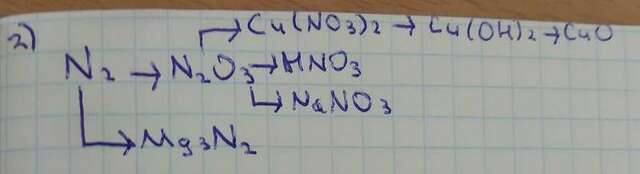 2) → Cu(NO3)2 → Cu(OH)2 → CuO
N2 → N2O3 → HNO3
→ NaNO3
→ Mg3N2